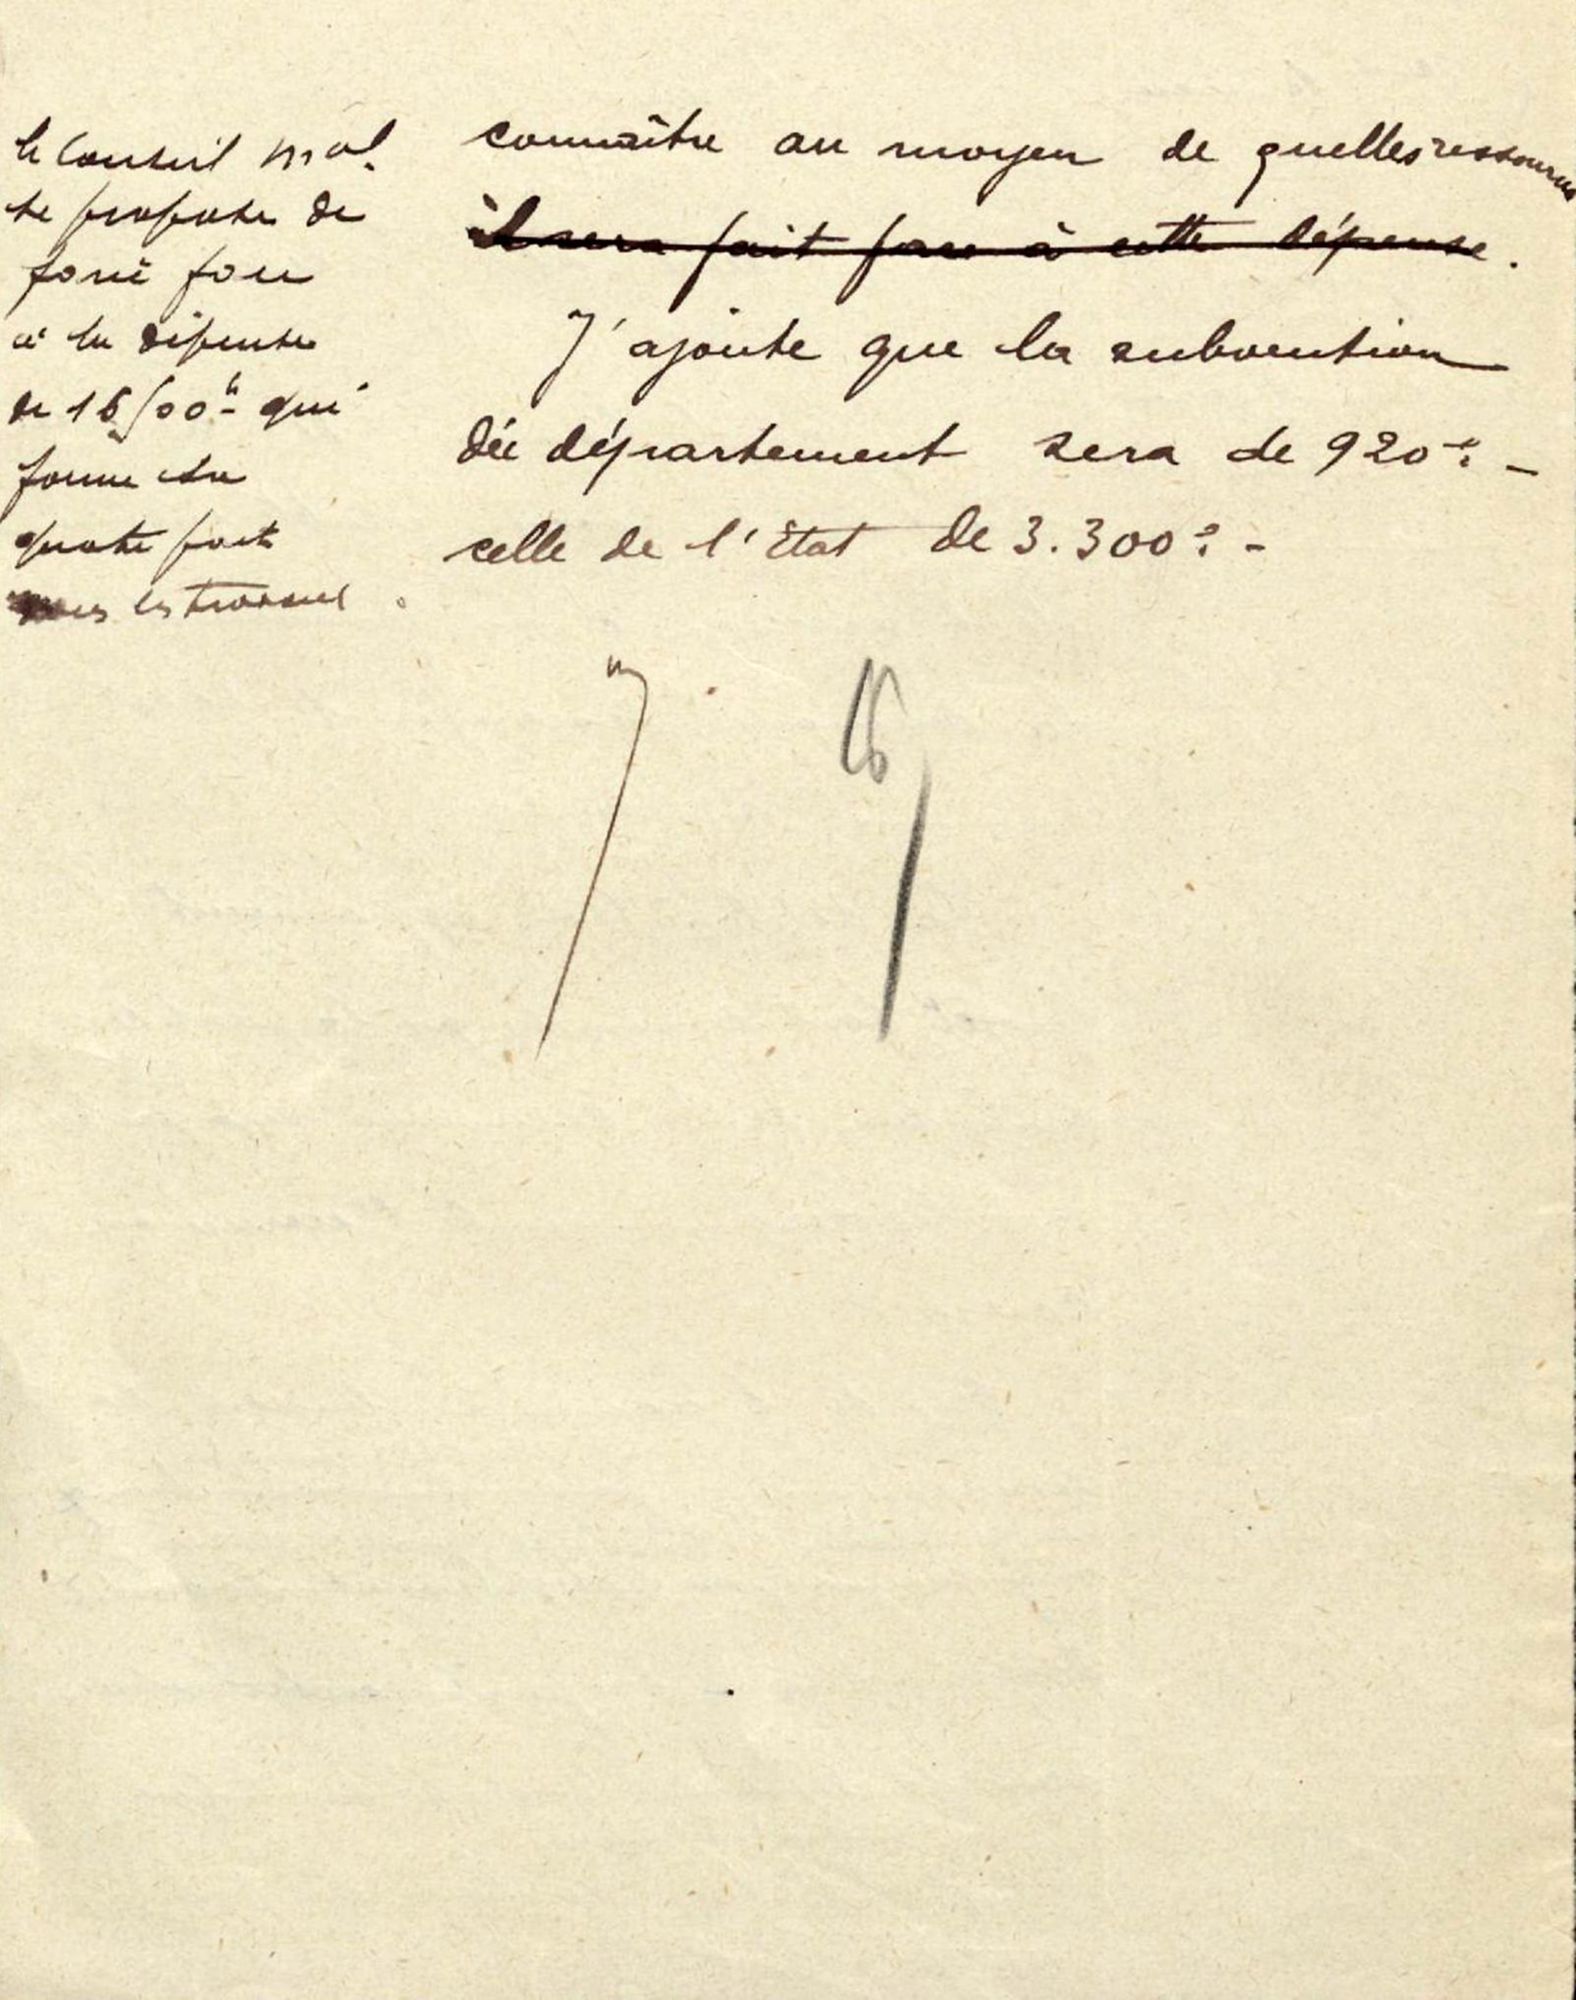 connaître au moyen de quelles ressources
il sera fait face à cette dépense.
J'ajoute que la subvention
du département sera de 920 -
celle de l'Etat de 3.300 -
le Conseil mal
se propose de
faire face
à la dépense
de 16500 qui
forme sa
quote part
dans les travaux.